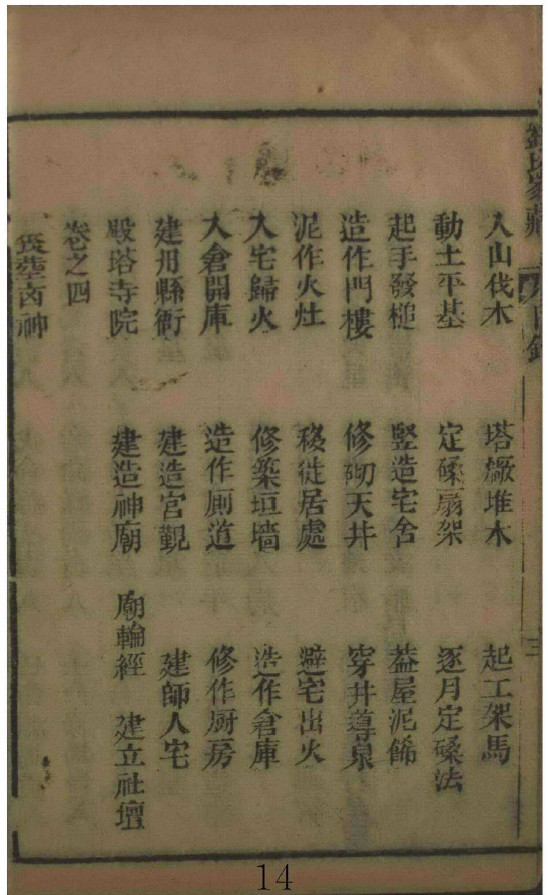 入山伐木 塔厰堆木 起工架馬
動土平基 定磉扇架 逐月定磉法
起手發槌 竪造宅舍 葢屋泥飾
造作門樓 修砌天井 穿井導泉
泥作火灶 移徙居處 避宅出火
入宅歸火 修築垣墻 造作倉庫
入倉開庫 造作厠道 修作厨房
建州縣衙 建造宮觀 建師人宅
殿塔寺院 建造神廟 廟輪經 建立社壇
卷之四
喪塟凶神
14